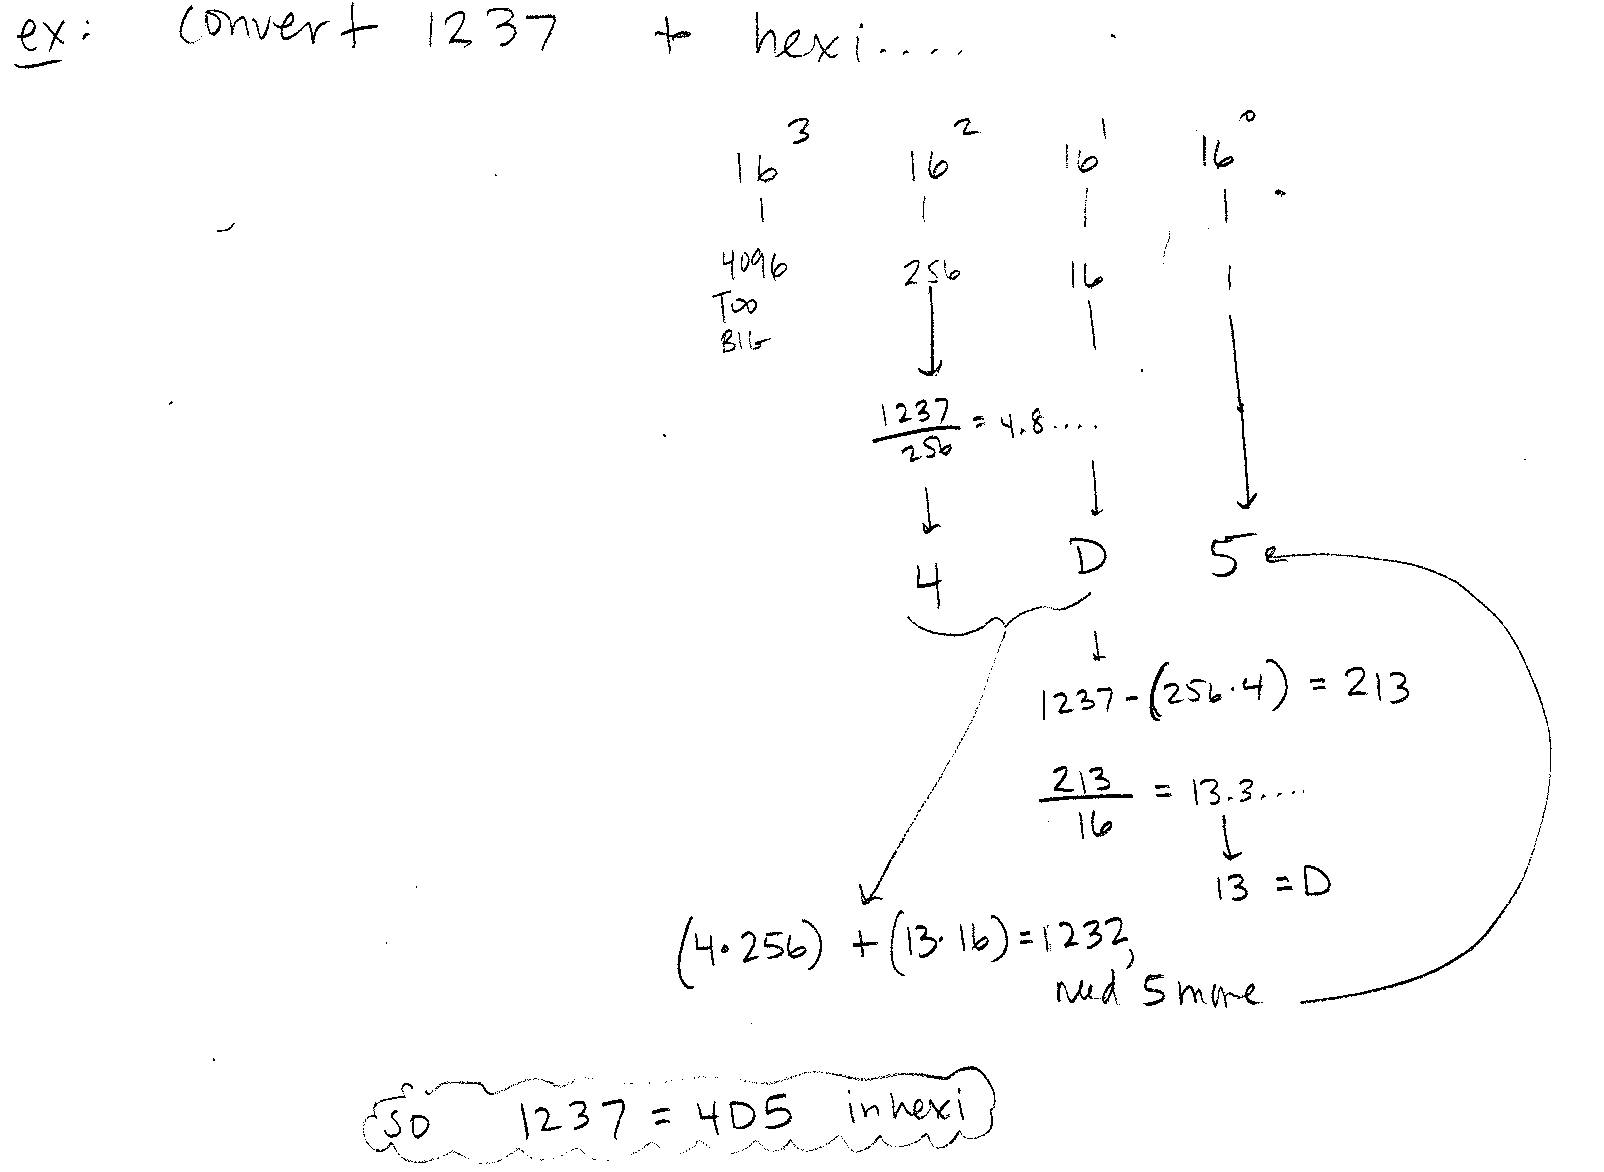 ex: Convert 1237 to hexi....
16³ 16² 16¹ 16⁰
4096 256 16 1
TOO
BIG
1237/256 = 4.8....
4 D 5
1237-(256·4) = 213
213/16 = 13.3....
13 = D
(4·256) + (13·16) = 1232,
need 5 more
SO 1237 = 4D5 in hexi